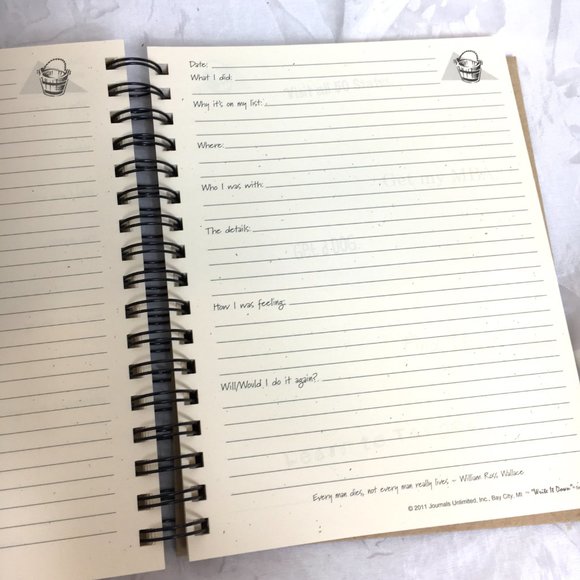 Date:
What I did:
Why it's on my list:
Where:
Who I was with:
The details:
How I was feeling:
Will/Would I do it again?
Every man dies, not every man really lives. – William Ross Wallace
© 2011 Journals Unlimited, Inc., Bay City, MI ~ "Write It Down"